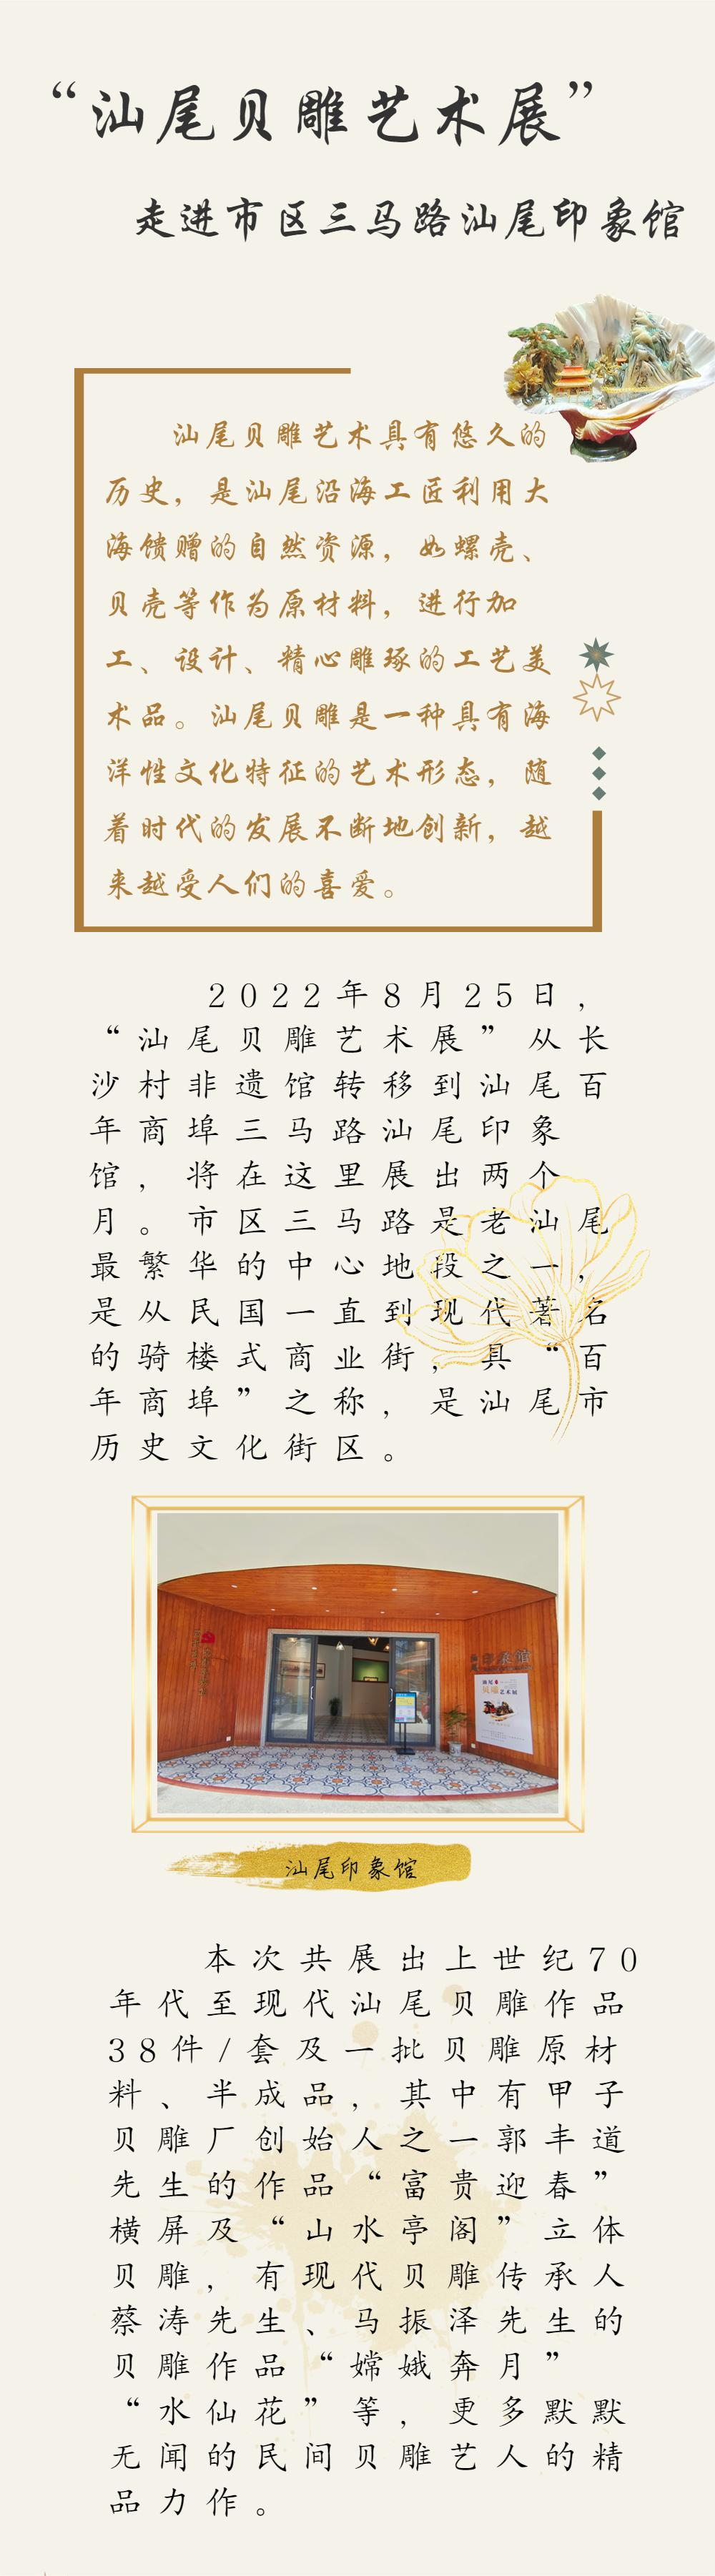 “汕尾贝雕艺术展”
走进市区三马路汕尾印象馆
汕尾贝雕艺术具有悠久的
历史，是汕尾沿海工匠利用大
海馈赠的自然资源，如螺壳、
贝壳等作为原材料，进行加
工、设计、精心雕琢的工艺美
术品。汕尾贝雕是一种具有海
洋性文化特征的艺术形态，随
着时代的发展不断地创新，越
来越受人们的喜爱。
2022年8月25日，
“汕尾贝雕艺术展”从长
沙村非遗馆转移到汕尾百
年商埠三马路汕尾印象
馆，将在这里展出两个
月。市区三马路是老汕尾
最繁华的中心地段之一，
是从民国一直到现代著名
的骑楼式商业街，具“百
年商埠”之称，是汕尾市
历史文化街区。
印象馆
贝雕艺术展
汕尾印象馆
本次共展出上世纪70
年代至现代汕尾贝雕作品
38件/套及一批贝雕原材
料、半成品，其中有甲子
贝雕厂创始人之一郭丰道
先生的作品“富贵迎春”
横屏及“山水亭阁”立体
贝雕，有现代贝雕传承人
蔡涛先生、马振泽先生的
贝雕作品“嫦娥奔月”
“水仙花”等，更多默默
无闻的民间贝雕艺人的精
品力作。